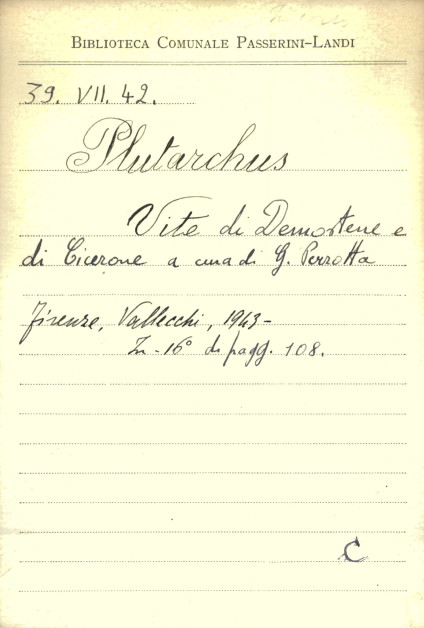 BIBLIOTECA COMUNALE PASSERINI-LANDI
39. VII. 42.
Plutarchus
Vite di Demostene e
di Cicerone a cura di G. Perrotta
Firenze, Vallecchi, 1943-
In-16° di pagg. 108.
C